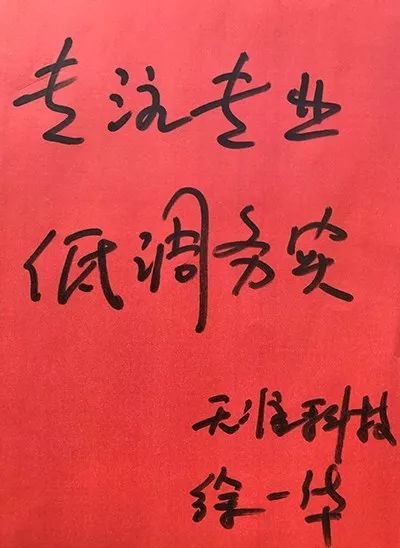 专注专业
低调务实
天淮科技
徐一华